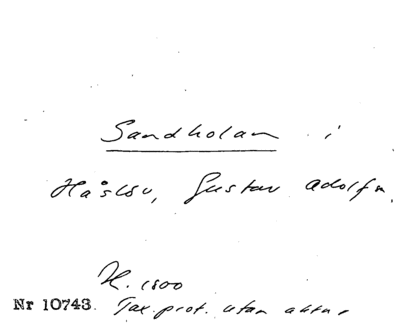 Sandholm i
Håslöv, Gustav Adolfs
H. 1800
Nr 10743. Tax.prot. utan aktnr